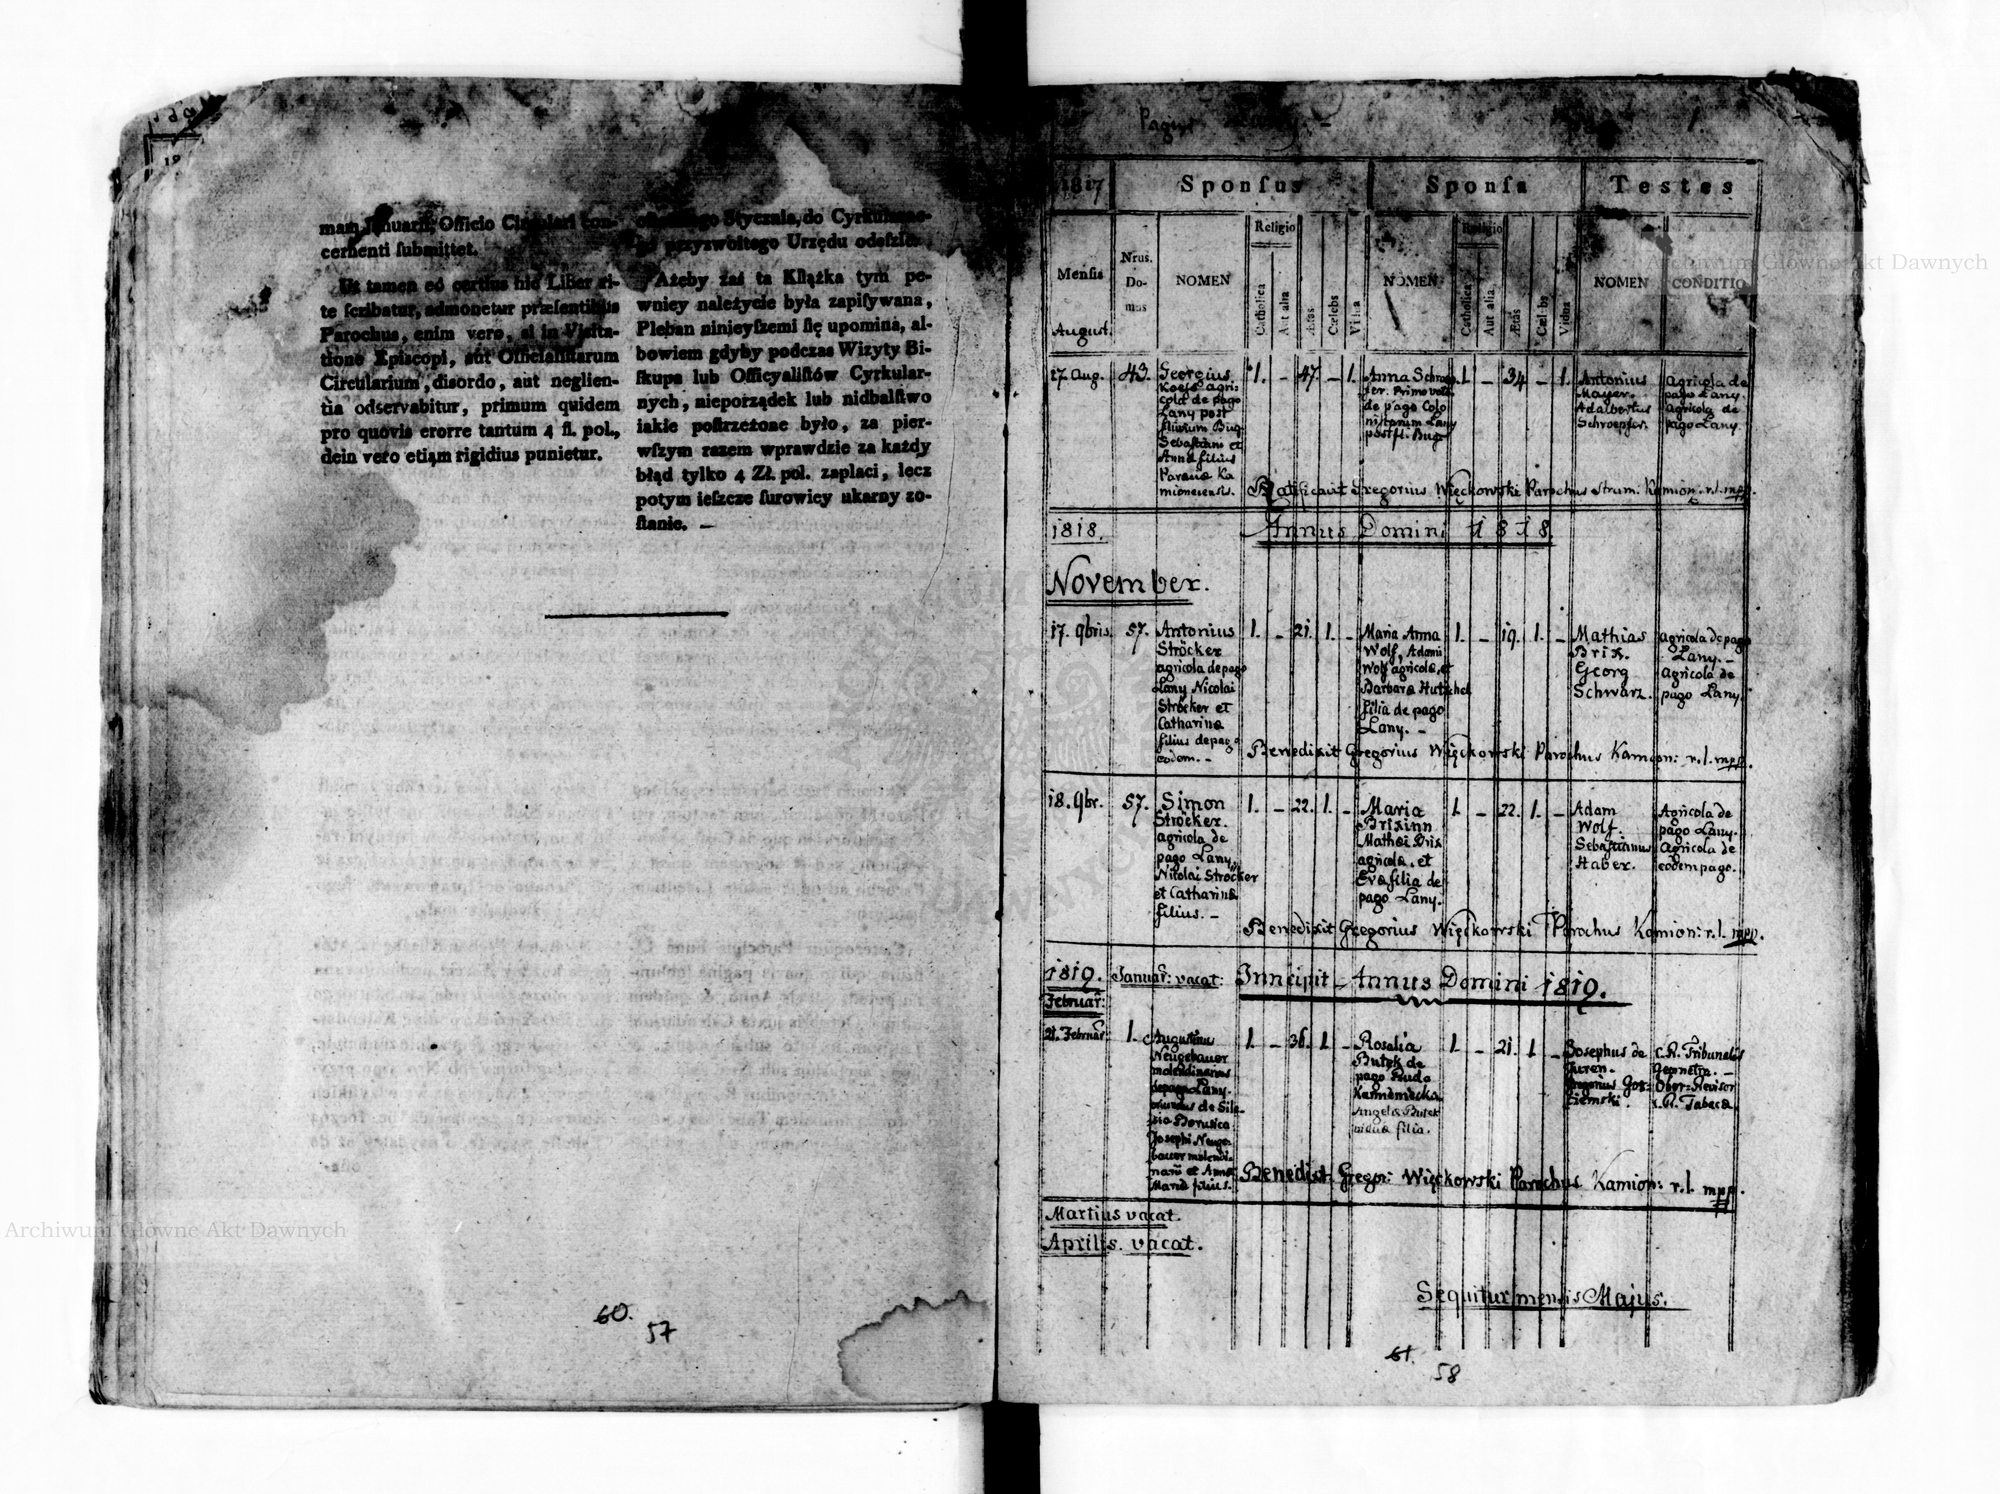 mam Januarii, Officio Circulari con-
cernenti ſubmittet.
Ut tamen eó certius hic Liber ri-
te ſcribatur, admonetur præſentibus
Parochus, enim vero, ſi in Viſita-
tione Epiſcopi, aut Officialiſtarum
Circularium, disordo, aut neglien-
tia odservabitur, primum quidem
pro quovis erorre tantum 4 fl. pol.,
dein vero etiam rigidius punietur.
Stycznia, do Cyrkularne-
przyzwoitego Urzędu odeſzle.
Ażeby zaś ta Kſiążka tym pe-
wniey należycie była zapiſywana,
Pleban ninieyſzemi ſię upomina, al-
bowiem gdyby podczas Wizyty Bi-
ſkupa lub Officyaliſtów Cyrkular-
nych, nieporządek lub nidbalſtwo
iakie poſtrzeżone było, za pier-
wſzym razem wprawdzie za każdy
błąd tylko 4 Zł. pol. zaplaci, lecz
potym ieſzcze ſurowicy ukarny zo-
ſtanie. —
60.
57
Pagina
1817
Sponſus
Sponſa
Testes
Menſis
August.
Nrus.
Do-
mus
NOMEN
Religio
Catholica
Aut alia
Ætas
Cælebs
Vidua
NOMEN
Religio
Catholica
Aut alia
Ætas
Cælebs
Vidua
NOMEN
CONDITIO
17 Aug.
43.
Georgius
agri-
cola de pago
Lany post
fluvium Bug
Sebastiani et
Anna filius
Kamionensis.
1. – 47. – 1.
Anna
de pago Colo
nistarum Lany
post fl. Bug
1 – 34 – 1.
Antonius
Mayer.
Adalbertus
Schroepfer.
agricola de
pago Lany.
agricola de
pago Lany.
Ratificavit Gregorius Więckowski Parochus Strum. Kamion: r.l. mpp.
1818.
Annus Domini 1818.
November.
17. 9bris.
57.
Antonius
Ströcker
agricola de pago
Lany Nicolai
Ströcker et
Catharina
filius de pago
eodem. –
1. – 21. 1. –
Maria Anna
Wolf, Adami
Wolf agricolæ, et
Barbara Hutschel
filia de pago
Lany. –
1. – 19. 1. –
Mathias
Brix.
Georg
Schwarz.
agricola de pago
Lany. –
agricola de
pago Lany.
Benedixit Gregorius Więckowski Parochus Kamion: r.l. mpp.
18. 9br.
57.
Simon
Ströcker.
agricola de
pago Lany,
Nikolai Ströcker
et Catharina
filius. –
1. – 22. 1. –
Maria
Brixinn
Mathei Brix
agricolæ. et
Eva filia de
pago Lany.
1. – 22. 1. –
Adam
Wolf.
Sebastianus
Haber.
Agricola de
pago Lany.
Agricola de
eodem pago.
Benedixit Gregorius Więckowski Parochus Kamion: r.l. mpp.
1819.
Januar: vacat:
Inncipit – Annus Domini 1819.
Februar:
21. Februar
1.
Augustinus
Neugebauer
molendinarius
de pago Lany.
oriundus de Sile-
sia Borusica
Josephi Neuge-
bauer molendi-
narii et Anna
Maria filius.
1. – 36. 1. –
Rosalia
Butek de
pago Ruda
Kamieniecka
Butek
vidua filia.
1. – 21. 1. –
Josephus de
ziemski.
C. R. Tribunalis
Geometra. –
Ober-Revisor
Tabaca
Benedixit Gregor: Więckowski Parochus Kamion: r.l. mpp.
Martius vacat.
Aprilis. vacat.
Sequitur mensis Majus.
61.
58
Archiwum Główne Akt Dawnych
Archiwum Główne Akt Dawnych